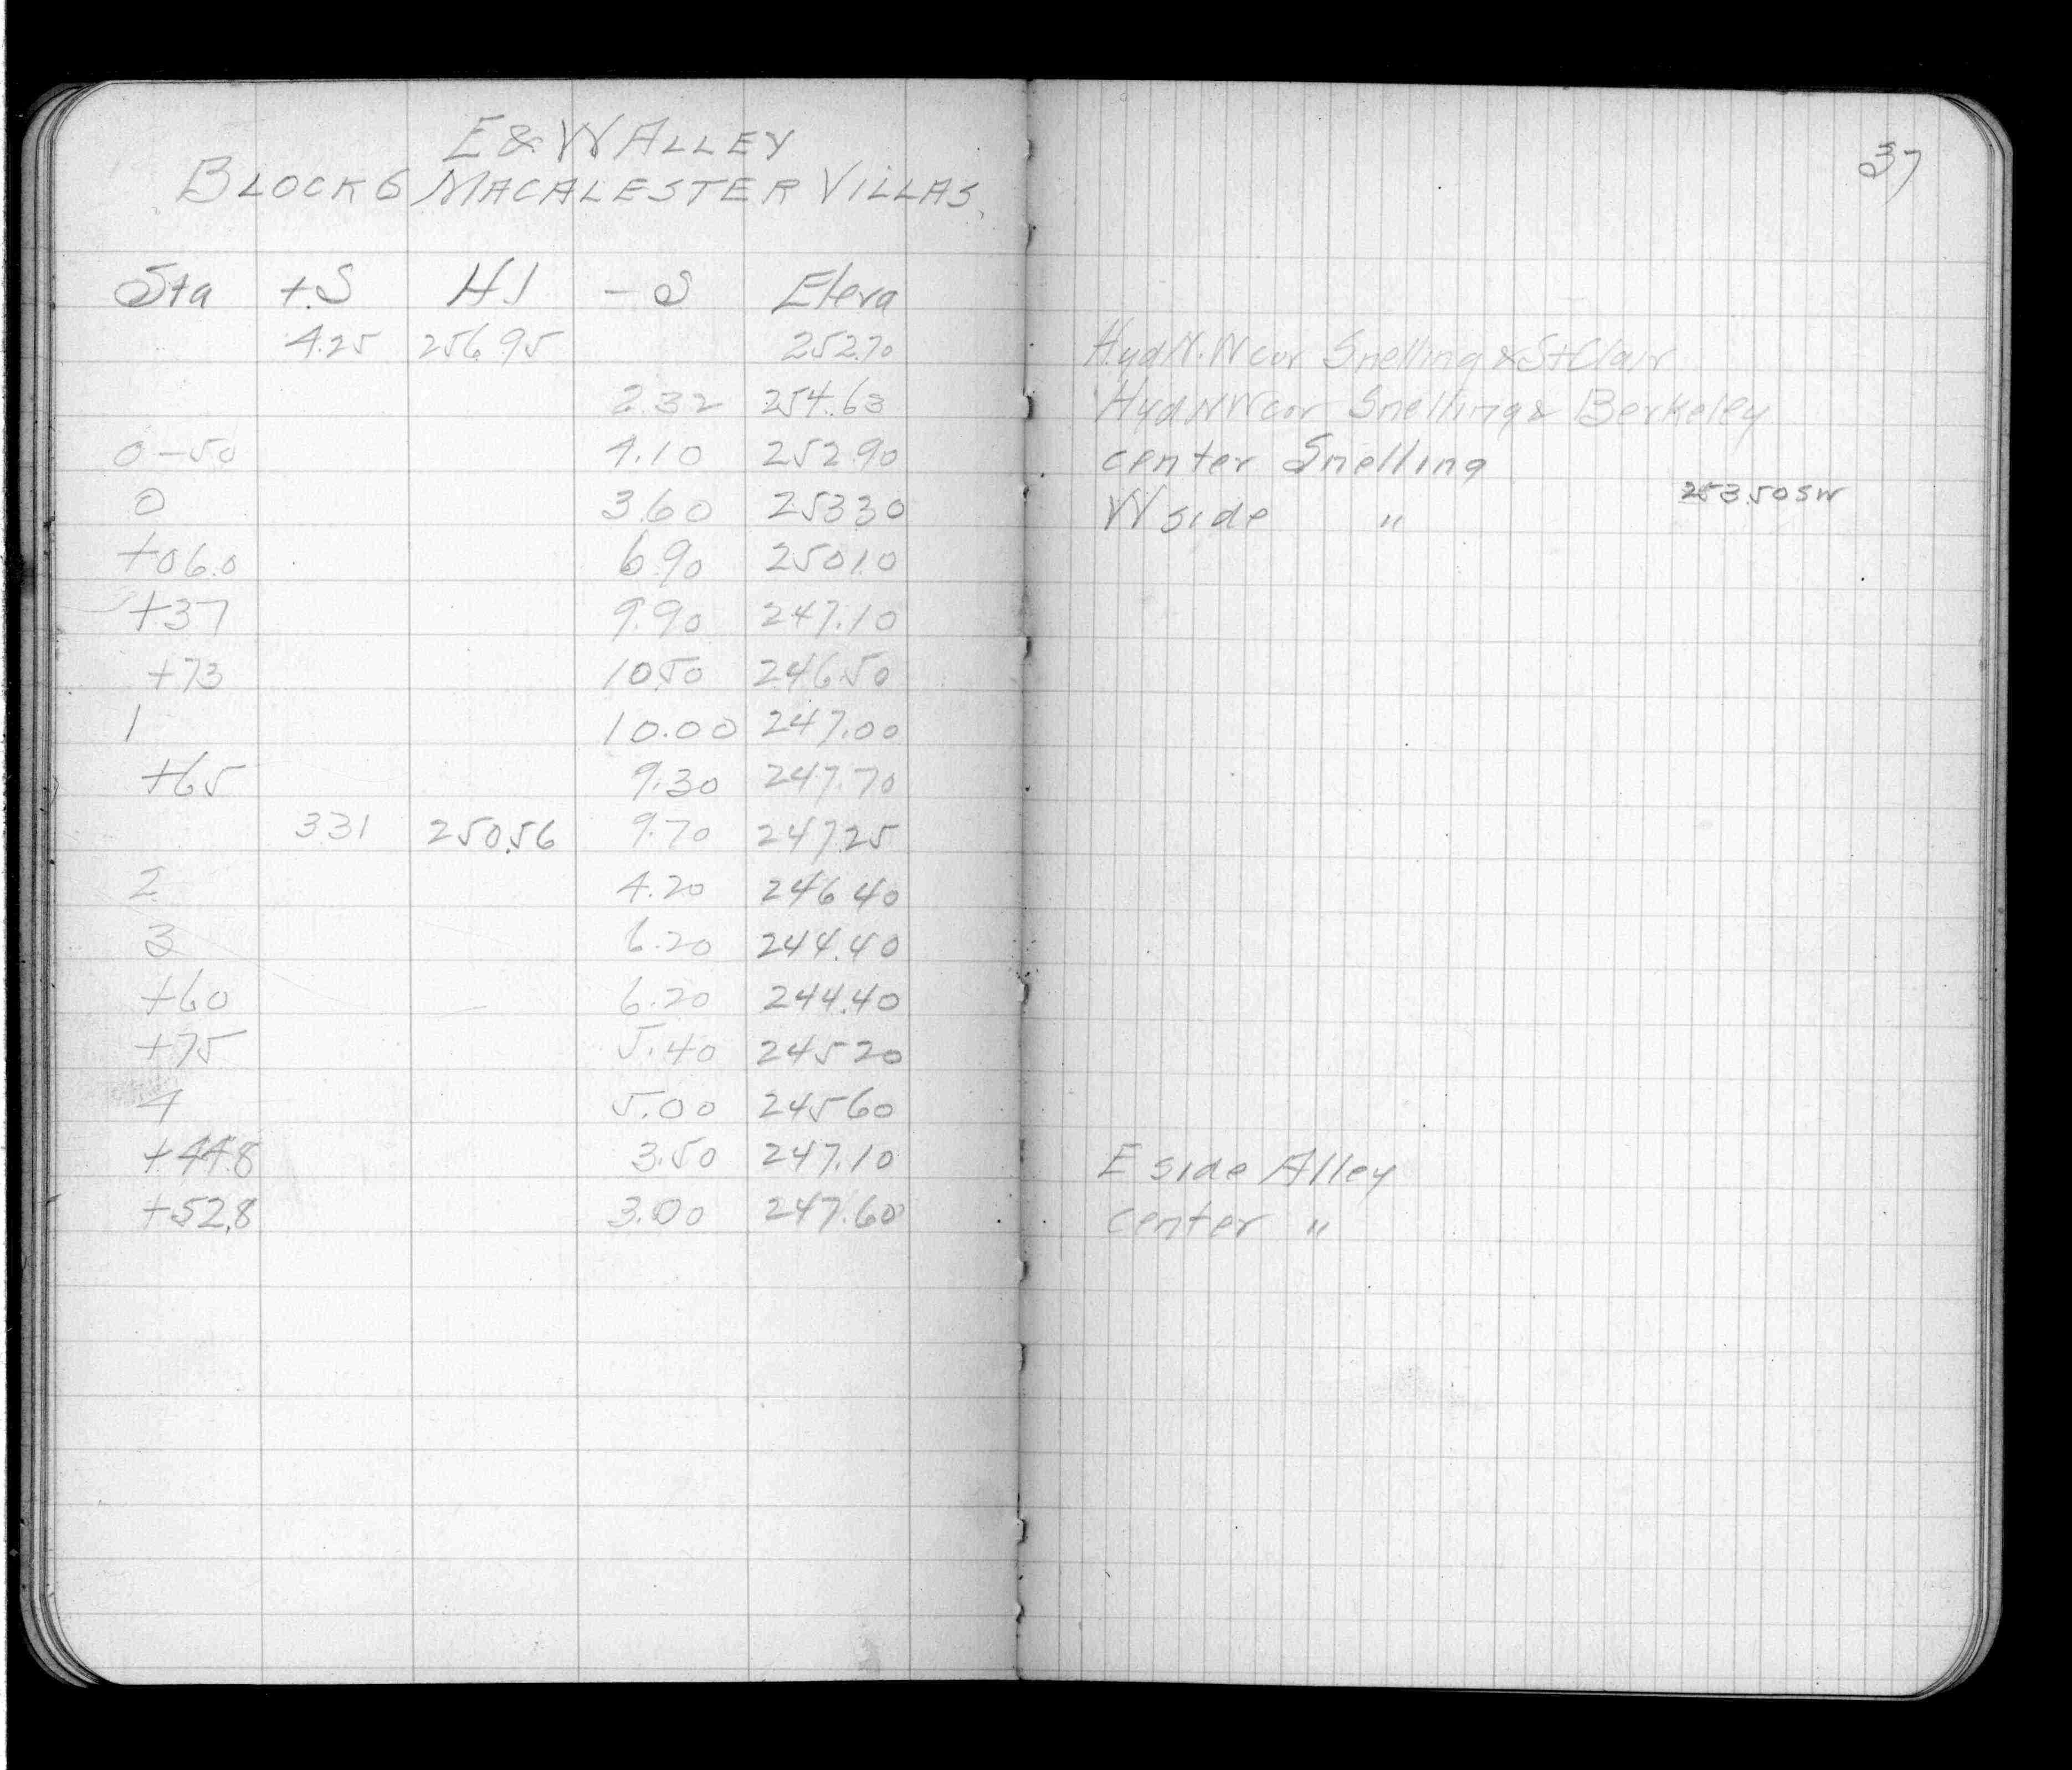 E & W ALLEY
BLOCK 6 MACALESTER VILLAS.
37
Sta +S HI -S Eleva
4.25 256.95 252.70 Hyd N.W cor Snelling & St Clair
2.32 254.63 Hyd NW cor Snelling & Berkeley
0-50 4.10 252.90 center Snelling
0 3.60 253.30 W side " 253.50 SW
+06.0 6.90 250.10
+37 9.90 247.10
+73 10.50 246.50
1 10.00 247.00
+65 9.30 247.70
3.31 250.56 9.70 247.25
2 4.20 246.40
3 6.20 244.40
+60 6.20 244.40
+75 5.40 245.20
4 5.00 245.60
+44.8 3.50 247.10 E side Alley
+52.8 3.00 247.60 center "